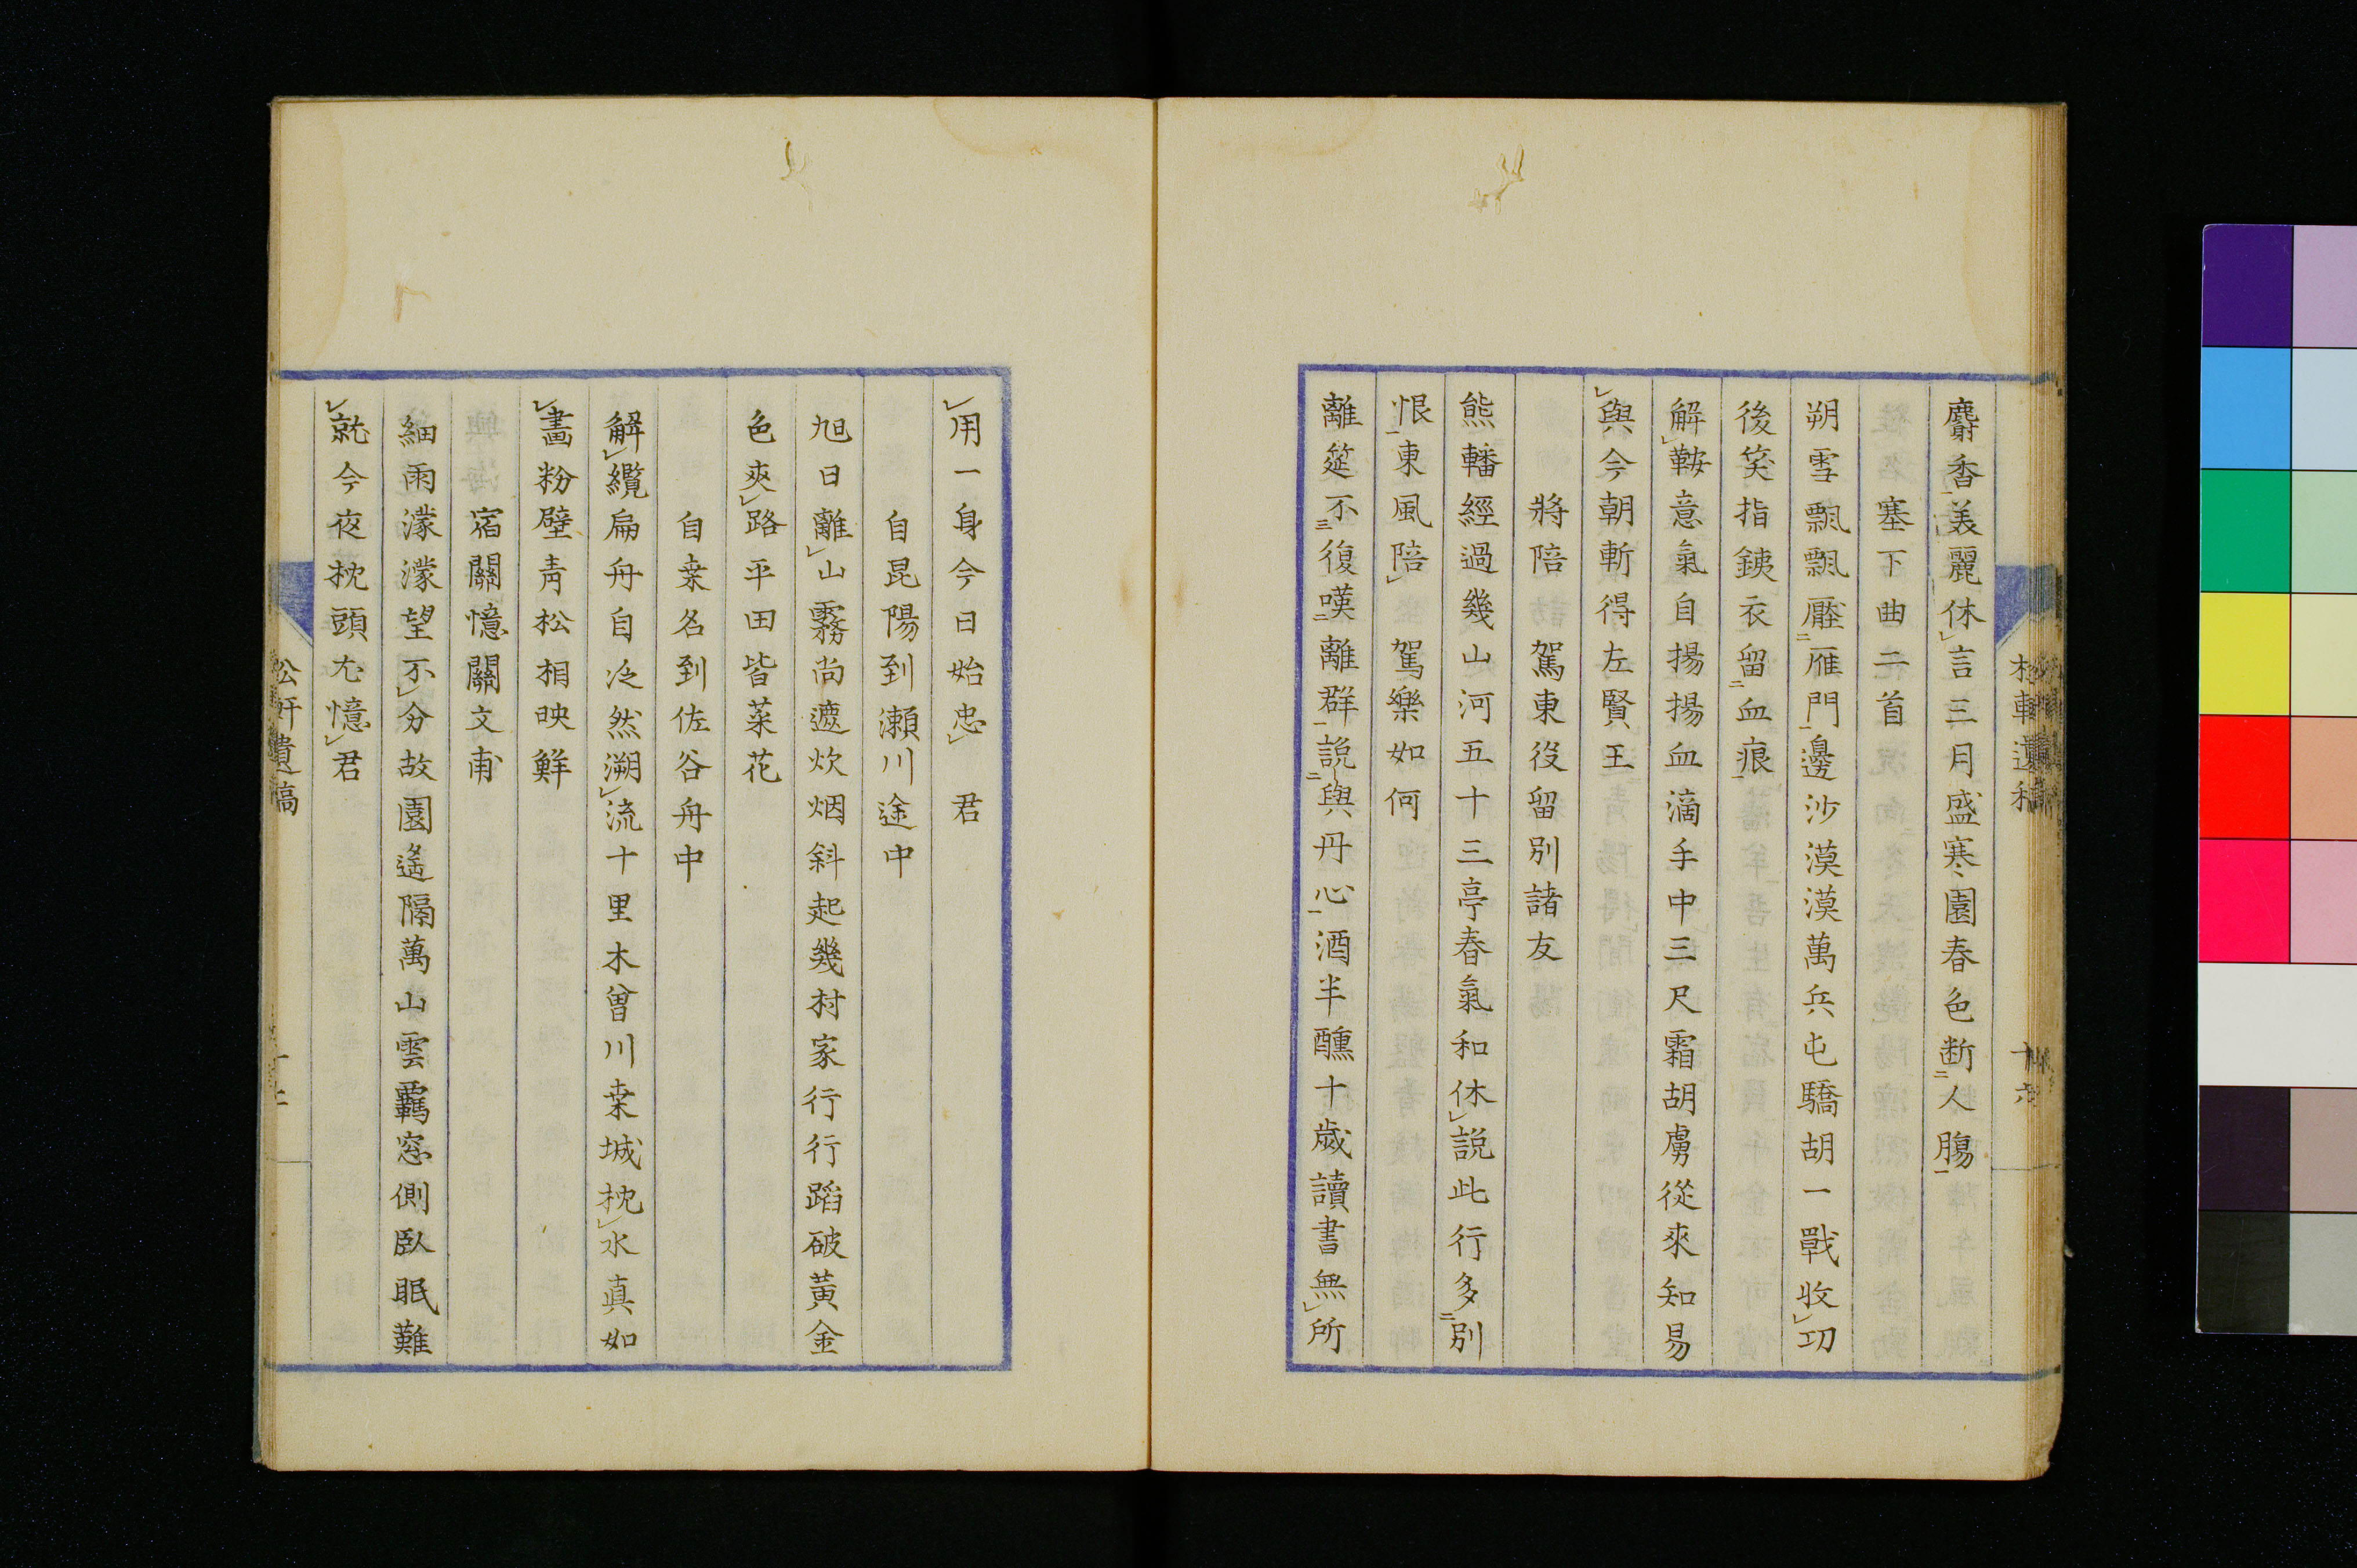 麝香美麗休言三月盛寒園春色断人膓
塞下曲二首
朔雪飄飄壓雁門邊沙漠漠萬兵屯驕胡一戰收功
後笑指銕衣留血痕
解鞍意氣自揚揚血滴手中三尺霜胡虜從來知易
與今朝斬得左賢王
將陪 駕東役留別諸友
熊轓經過幾山河五十三亭春氣和休説此行多別
恨東風陪 駕樂如何
離筵不復嘆離群説與丹心酒半醺十歲讀書無所
用一身今日始忠 君
自昆陽到瀨川途中
旭日離山霧尚遮炊烟斜起幾村家行行蹈破黃金
色夾路平田皆菜花
自桒名到佐谷舟中
解纜扁舟自泛然溯流十里木曾川桒城枕水真如
畵粉壁青松相映鮮
宿關憶關文甫
細雨濛濛望不分故園遙隔萬山雲羈窓側臥眠難
就今夜枕頭尤憶君
公軒遺稿